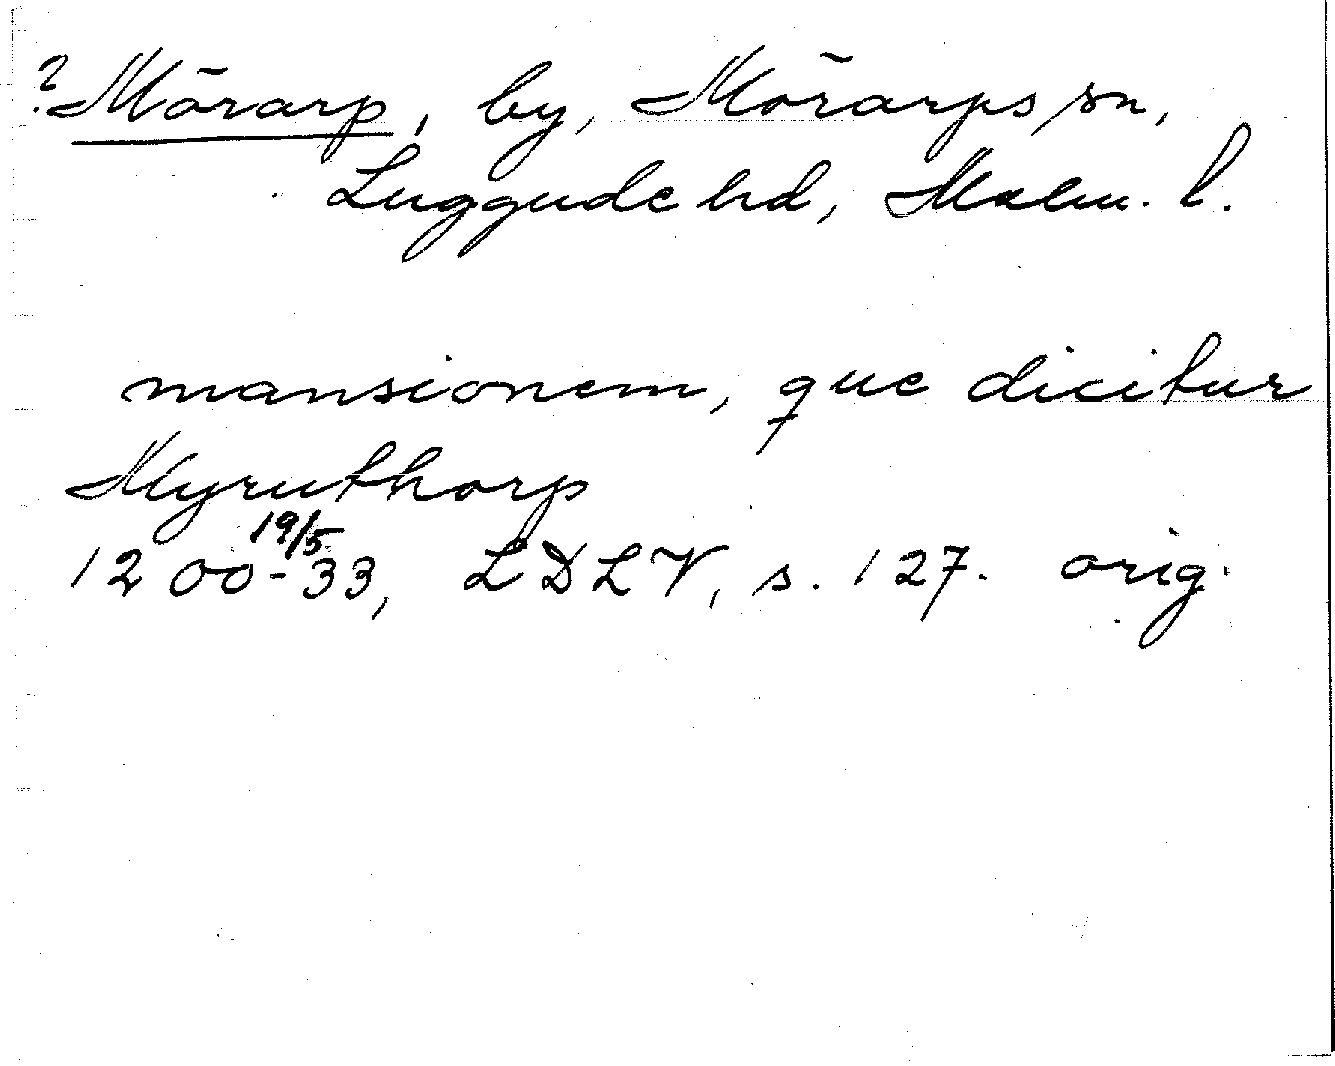 ? Mörarp, by, Mörarps sn,
Luggude hd, Malm. l.
mansionem, que dicitur
Myruthorp
19/5
1200-33, LDLV, s. 127. orig.